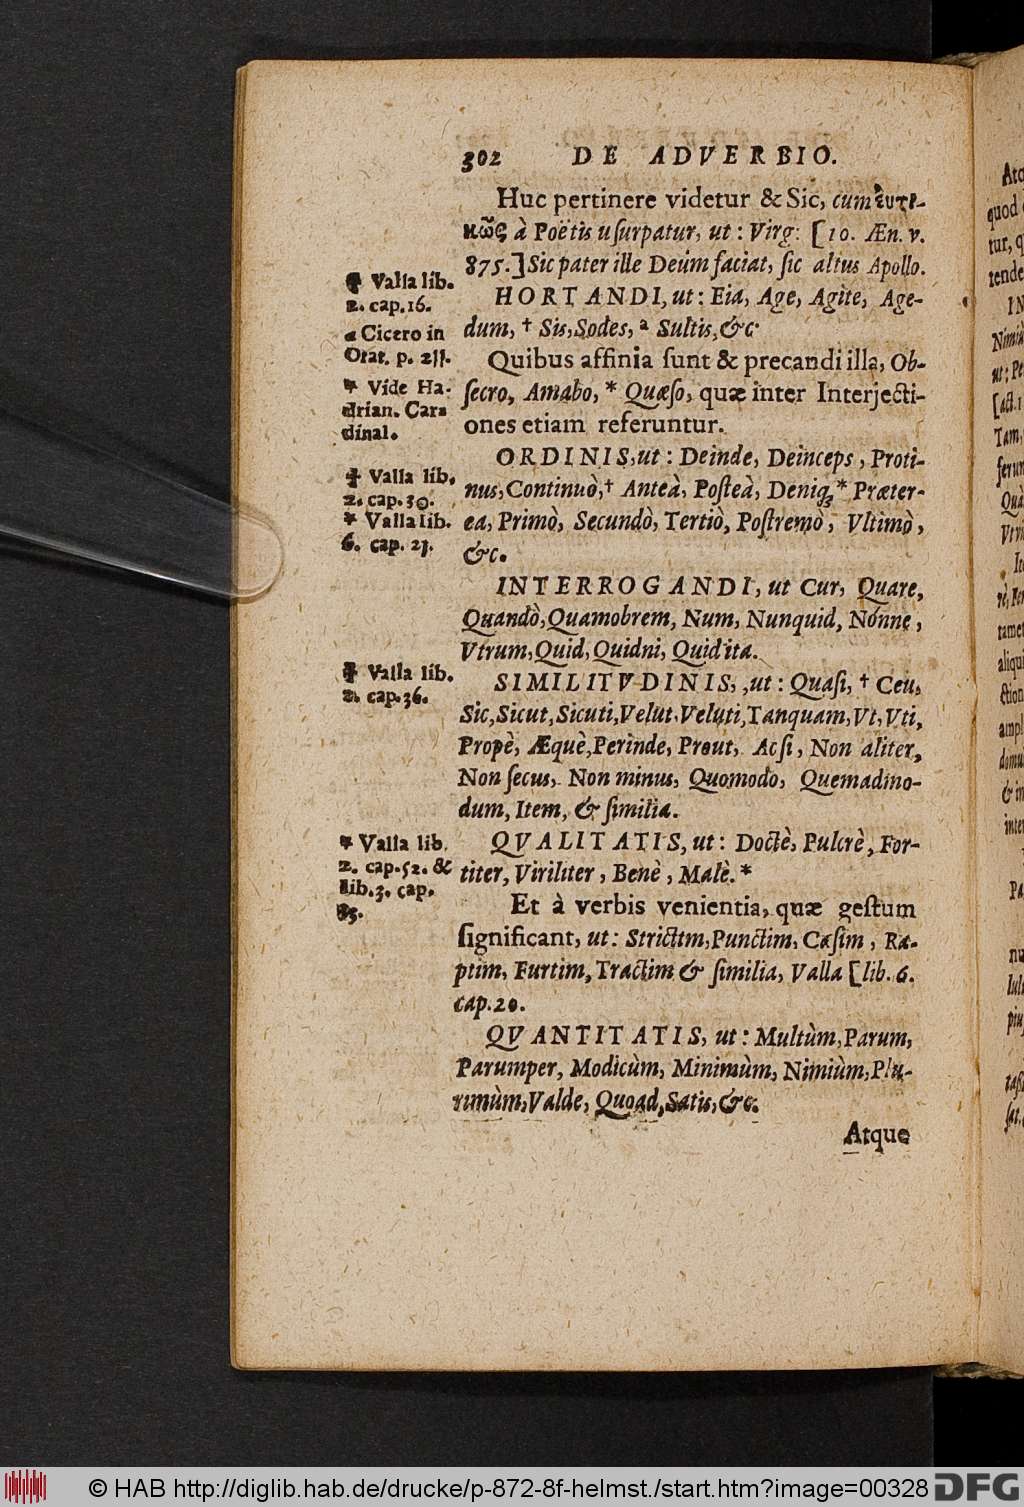 302 DE ADVERBIO.
Huc pertinere videtur & Sic, cum ἐυτι-
κῶς à Poëtis usurpatur, ut: Virg: [10. Æn. v.
875.] Sic pater ille Deûm faciat, sic altus Apollo.
HORTANDI, ut: Eia, Age, Agite, Age-
dum, † Sis, Sodes, a Sultis, &c.
Quibus affinia sunt & precandi illa, Ob-
secro, Amabo, * Quæso, quæ inter Interjecti-
ones etiam referuntur.
ORDINIS, ut: Deinde, Deinceps, Proti-
nus, Continuò, † Anteà, Posteà, Deniq; * Præter-
ea, Primò, Secundò, Tertiò, Postremò, Vltimò,
&c.
INTERROGANDI, ut Cur, Quare,
Quandò, Quamobrem, Num, Nunquid, Nónne,
Vtrum, Quid, Quidni, Quid ita.
SIMILITVDINIS, ,ut: Quasi, † Ceu,
Sic, Sicut, Sicuti, Velut, Veluti, Tanquam, Vt, Vti,
Propè, Æquè, Perinde, Prout, Ac si, Non aliter,
Non secus, Non minus, Quomodo, Quemadmo-
dum, Item, & similia.
QVALITATIS, ut: Doctè, Pulcrè, For-
titer, Viriliter, Benè, Malè. *
Et à verbis venientia, quæ gestum
significant, ut: Strictim, Punctim, Casim, Ra-
ptim, Furtim, Tractim & similia, Valla [lib. 6.
cap. 20.
QVANTITATIS, ut: Multùm, Parum,
Parumper, Modicùm, Minimùm, Nimiùm, Plu-
rimùm, Valde, Quoad, Satis, &c.
Atque
† Valla lib.
2. cap. 16.
a Cicero in
Orat. p. 211.
* Vide Ha-
drian. Car-
dinal.
† Valla lib.
2. cap. 30.
* Valla lib.
6. cap. 21.
† Valla lib.
2. cap. 36.
* Valla lib.
2. cap. 52. &
lib. 3. cap.
85.
© HAB http://diglib.hab.de/drucke/p-872-8f-helmst./start.htm?image=00328 DFG